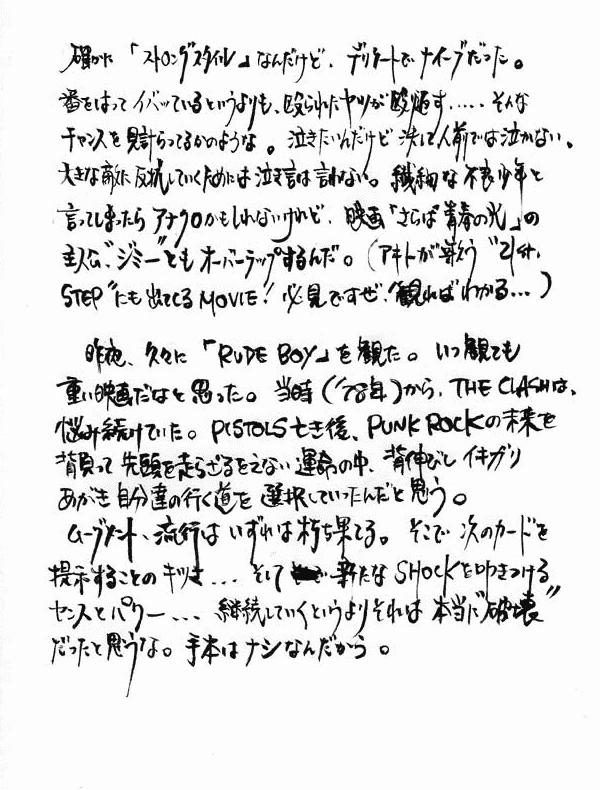 確かに「ストロングスタイル」なんだけど、デリケートでナイーブだった。
番をはってイバッているというよりも、殴られたヤツが殴り返す.....そんな
チャンスを見計らってるかのような。泣きたいんだけど決して人前では泣かない。
大きな敵に反抗していくためには泣き言は言わない。繊細な不良少年と
言ってしまったらアナクロかもしれないけれど、映画「さらば青春の光」の
主人公、"ジミー"ともオーバーラップするんだ。(アキトが歌う "21st.
STEP"にも出てくるMOVIE! 必見ですぜ、観ればわかる...)
昨夜、久々に「RUDE BOY」を観た。いつ観ても
重い映画だなと思った。当時('78年)から、THE CLASHは、
悩み続けていた。PISTOLS亡き後、PUNK ROCKの未来を
背負って先頭を走らざるをえない運命の中、背伸びしイキガリ
あがき自分達の行く道を選択していったんだと思う。
ムーブメント、流行はいずれは朽ち果てる。そこで次のカードを
提示することのキツさ...そして新たなSHOCKを叩きつける
センスとパワー...継続していくというよりそれは本当に"破壊"
だったと思うな。手本はナシなんだから。